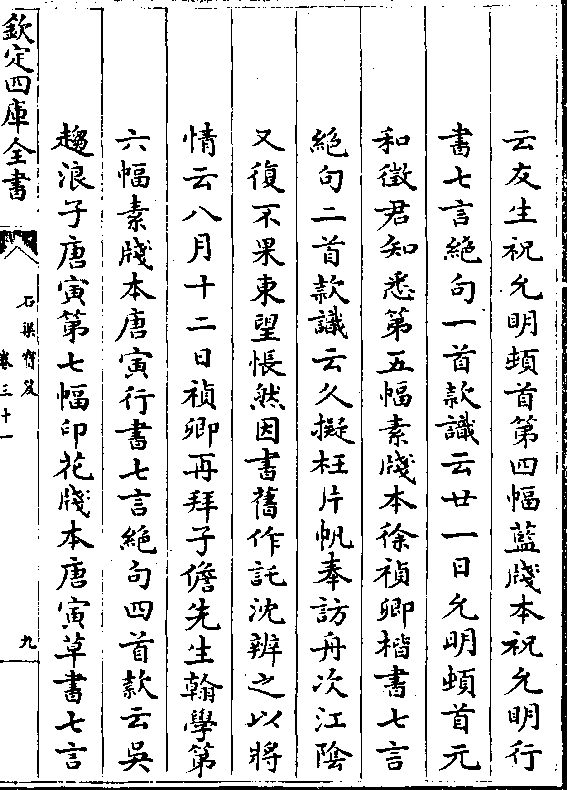 云友生祝允明頓首第四幅藍牋本祝允明行
書七言絕句一首款識云廿一日允明頓首元
和徵君知悉第五幅素牋本徐禎卿楷書七言
絕句二首款識云久擬枉片帆奉訪舟次江陰
又復不果東望悵然因書舊作託沈辨之以將
情云八月十二日禎卿再拜子儋先生翰學第
六幅素牋本唐寅行書七言絕句四首款云吳
趨浪子唐寅第七幅印花牋本唐寅草書七言
欽定四庫全書
石渠寶笈
卷三十一
九